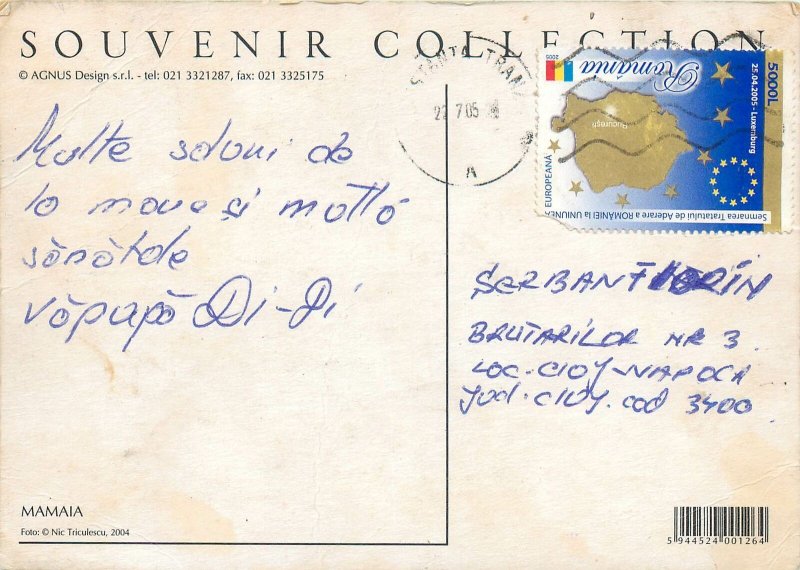 SOUVENIR COLLECTION
© AGNUS Design s.r.l. - tel: 021 3321287, fax: 021 3325175
Multe salutari de
la mare și multă
sănătate
vă pupă Di-Di
România
2005
5000L
25.04.2005 - Luxemburg
București
Semnarea Tratatului de Aderare a ROMÂNIEI la UNIUNEA
EUROPEANĂ
7.05
A
ȘERBAN FLORIN
BRUTARILOR NR 3
LOC-CLUJ-NAPOCA
Jud. CLUJ. cod 3400
MAMAIA
Foto: © Nic Triculescu, 2004
5 944524 001264